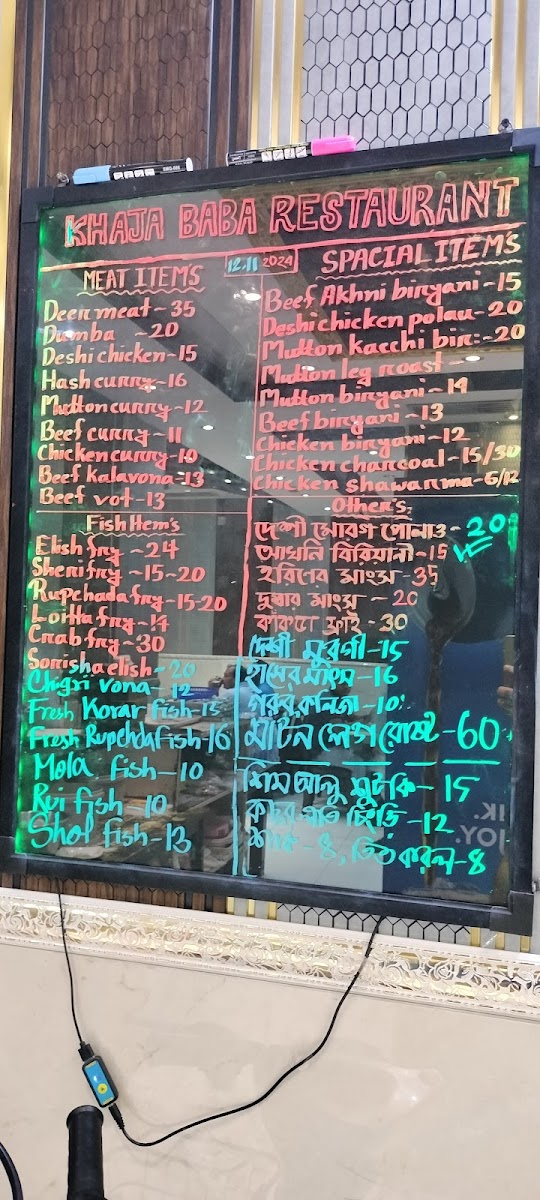 KHAJA BABA RESTAURANT
12.11 2024
MEAT ITEM'S
Deer meat - 35
Dumba - 20
Deshi chicken - 15
Hash curry - 16
Mutton curry - 12
Beef curry - 11
Chicken curry - 10
Beef kalavona - 13
Beef vot - 13
Fish Item's
Elish fry - 24
Sheri fry - 15-20
Rupchada fry - 15-20
Loitta fry - 14
Crab fry - 30
Sorisha elish - 20
Chigri vona - 12
Fresh Korar fish - 15
Fresh Rupchda fish - 16
Mola fish - 10
Rui fish - 10
Shol fish - 13
SPACIAL ITEM'S
Beef Akhni biryani - 15
Deshi chicken polau - 20
Mutton kacchi bir: - 20
Mutton leg roast -
Mutton biryani - 14
Beef biryani - 13
Chicken biryani - 12
Chicken charcoal - 15/30
Chicken shawarma - 6/12
Other's
দেশী মোরগ পোলাও - 20
আখনি বিরিয়ানী - 15
হরিণের মাংস - 35
দুম্বার মাংস - 20
কাঁকড়া ফ্রাই - 30
দেশী মুরগী - 15
হাঁসের মাংস - 16
গরুর কলিজা - 10
মাটন লেগ রোস্ট - 60
শিম আলু শুটকি - 15
কচুর লতি চিংড়ি - 12
শাক - 8, তিত করলা - 8
IK.
JOY.